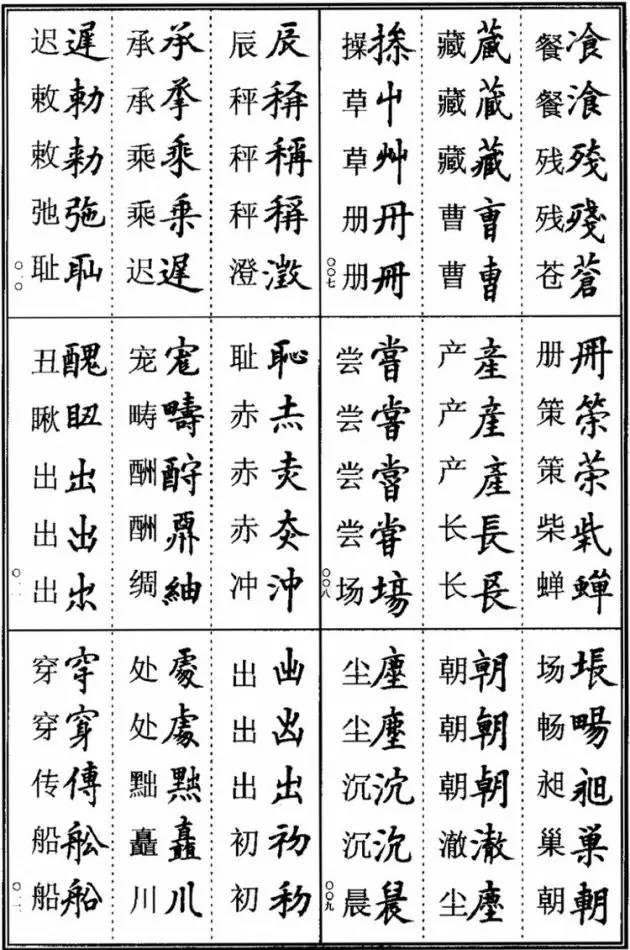 餐飡 餐湌 残残 残殘 苍蒼
藏蔵 藏蔵 藏藏 曹曺 曹曹
操捺 草屮 草艸 册冊 册冊
〇〇七
册冊 策筞 策茦 柴 蝉蟬
产產 产産 产產 长長 长镸
尝嘗 尝嘗 尝嘗 尝甞 场塲
〇〇八
场塲 畅暢 昶昶 巢巢 朝朝
朝朝 朝朝 朝朝 澈澈 尘塵
尘塵 尘塵 沉沉 沉沉 晨晨
〇〇九
辰辰 秤秤 秤稱 秤稱 澄澂
承承 承 乘乘 乘乗 迟遲
迟遲 敕勅 敕勑 弛弛 耻耻
〇一〇
耻恥 赤赤 赤 赤 冲沖
宠宠 畴疇 酬酧 酬 绸紬
丑醜 瞅 出出 出出 出出
〇一一
出出 出出 出出 初初 初初
处處 处處 黜黜 矗矗 川川
穿穿 穿穿 传傳 船舩 船船
〇一二